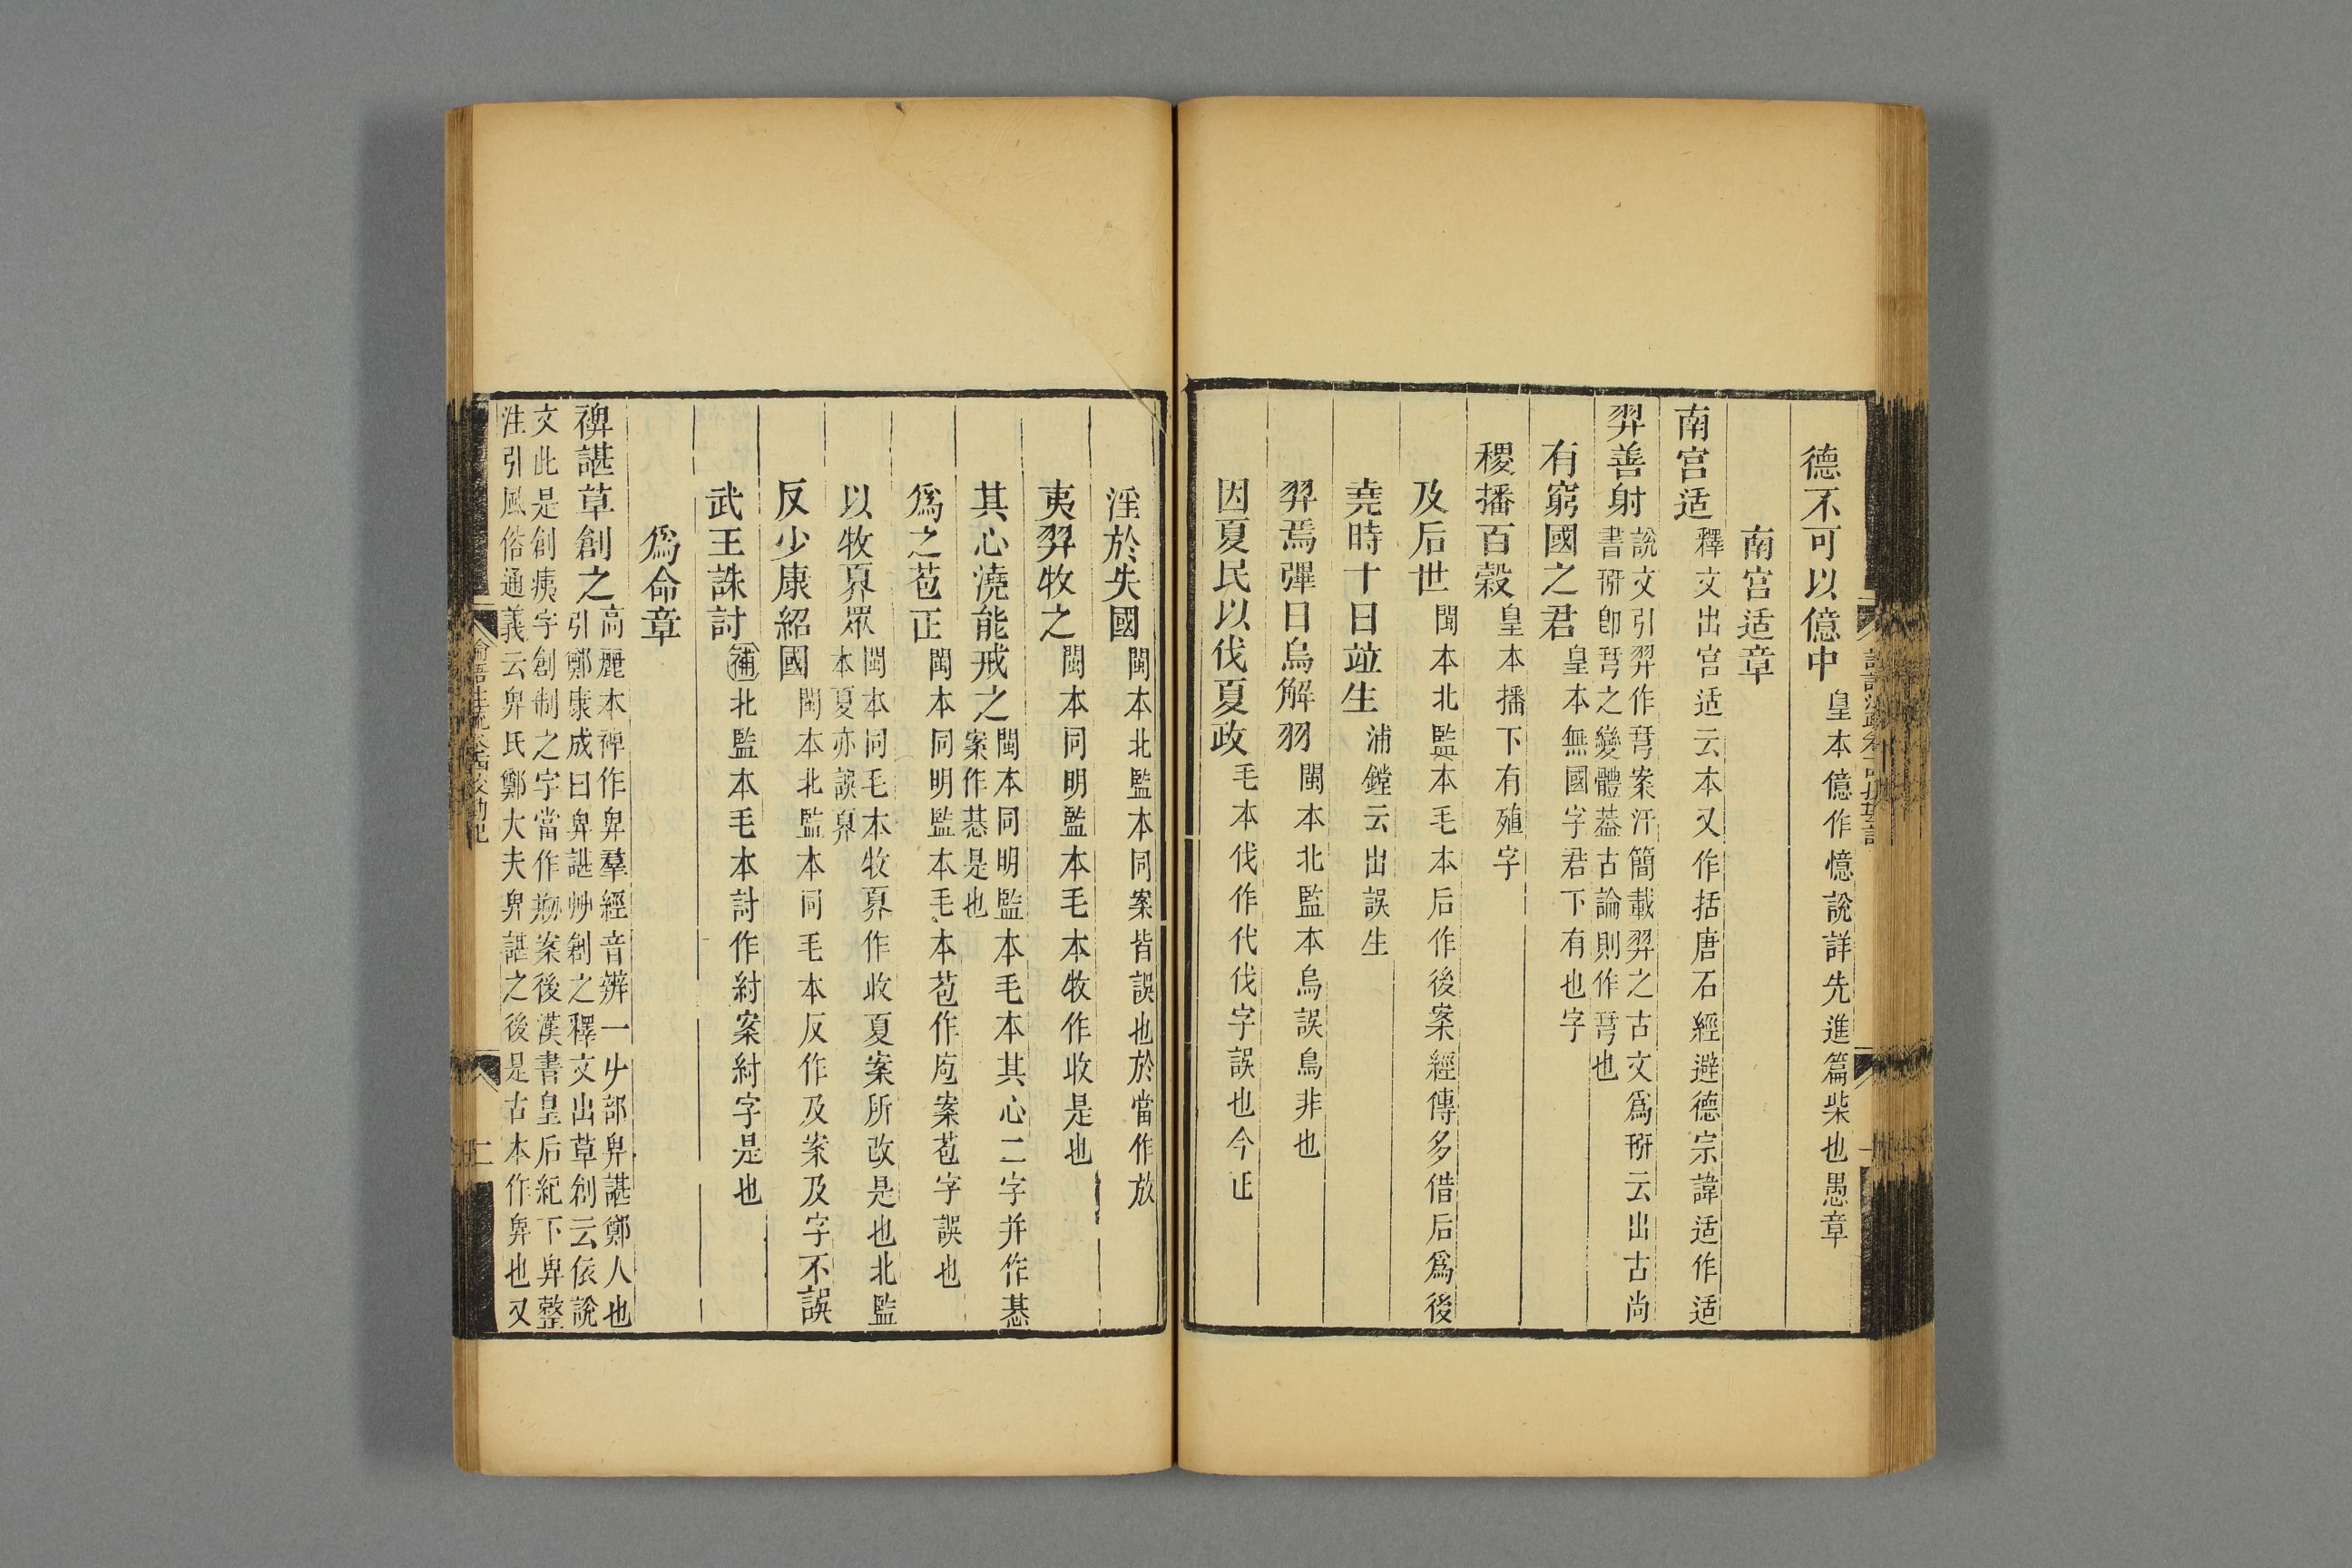 德不可以億中皇本億作憶說詳先進篇柴也愚章
南宮适章
南宮适釋文出宮适云本又作括唐石經避德宗諱适作适
羿善射說文引羿作𢏗案汗簡載羿之古文爲㢨云出古尚
書㢨卽𢏗之變體葢古論則作𢏗也
有窮國之君皇本無國字君下有也字
稷播百穀皇本播下有殖字
及后世閩本北監本毛本后作後案經傳多借后爲後
堯時十日竝生浦鏜云出誤生
羿焉彈日烏解羽閩本北監本烏誤鳥非也
因夏民以伐夏政毛本伐作代伐字誤也今正
淫於失國閩本北監本同案皆誤也於當作放
夷羿牧之閩本同明監本毛本牧作收是也
其心澆能戒之閩本同明監本毛本其心二字并作惎
案作惎是也
爲之苞正閩本同明監本毛本苞作庖案苞字誤也
以牧夏眾閩本同毛本牧夏作收夏案所改是也北監
本夏亦誤夏
反少康紹國閩本北監本同毛本反作及案及字不誤
武王誅討補北監本毛本討作紂案紂字是也
爲命章
裨諶草創之高麗本裨作卑羣經音辨一𠂇部卑諶鄭人也
引鄭康成曰卑諶艸創之釋文出草創云依說
文此是創痍字創制之字當作刱案後漢書皇后紀下卑整
注引風俗通義云卑氏鄭大夫卑諶之後是古本作卑也又
論語注疏卷十四校勘記
二